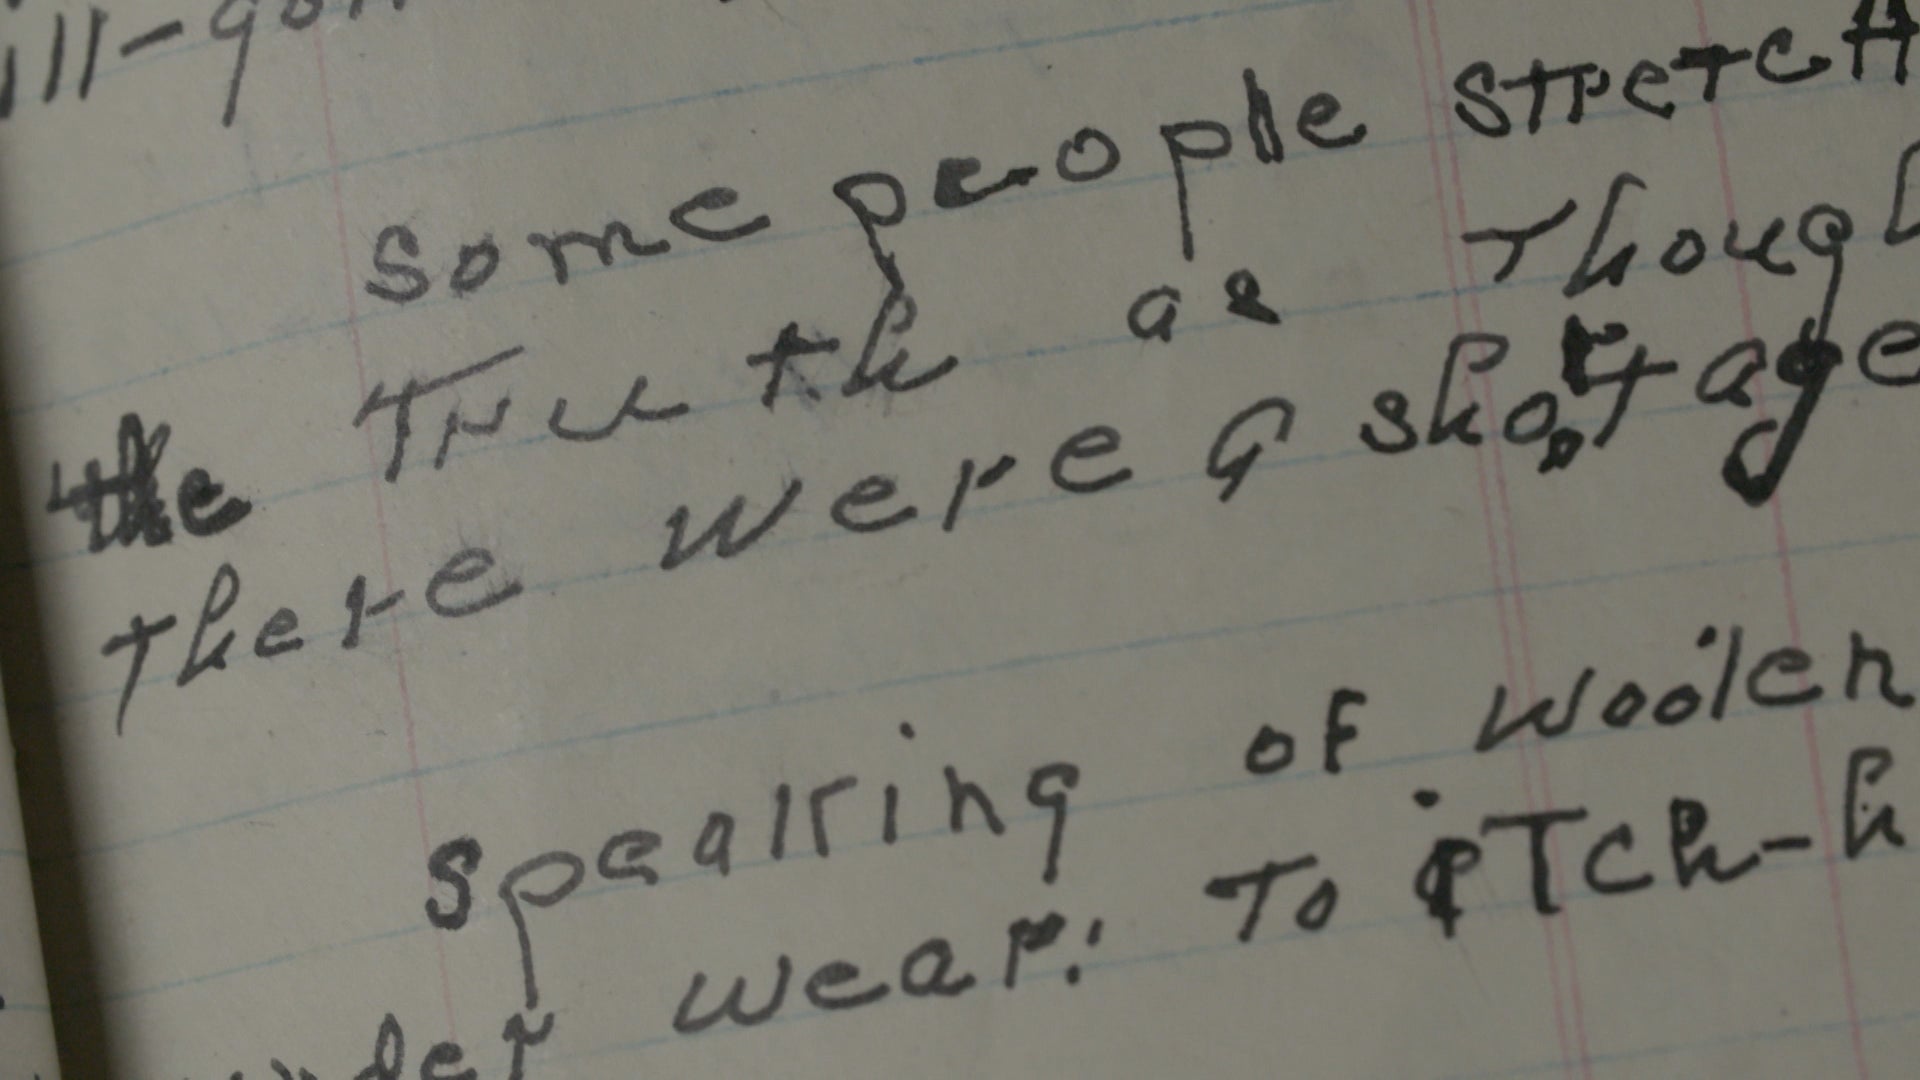 some people stretch
the Truth as Though
There were a shortage
speaking of woolen
under wear: To iTch-h